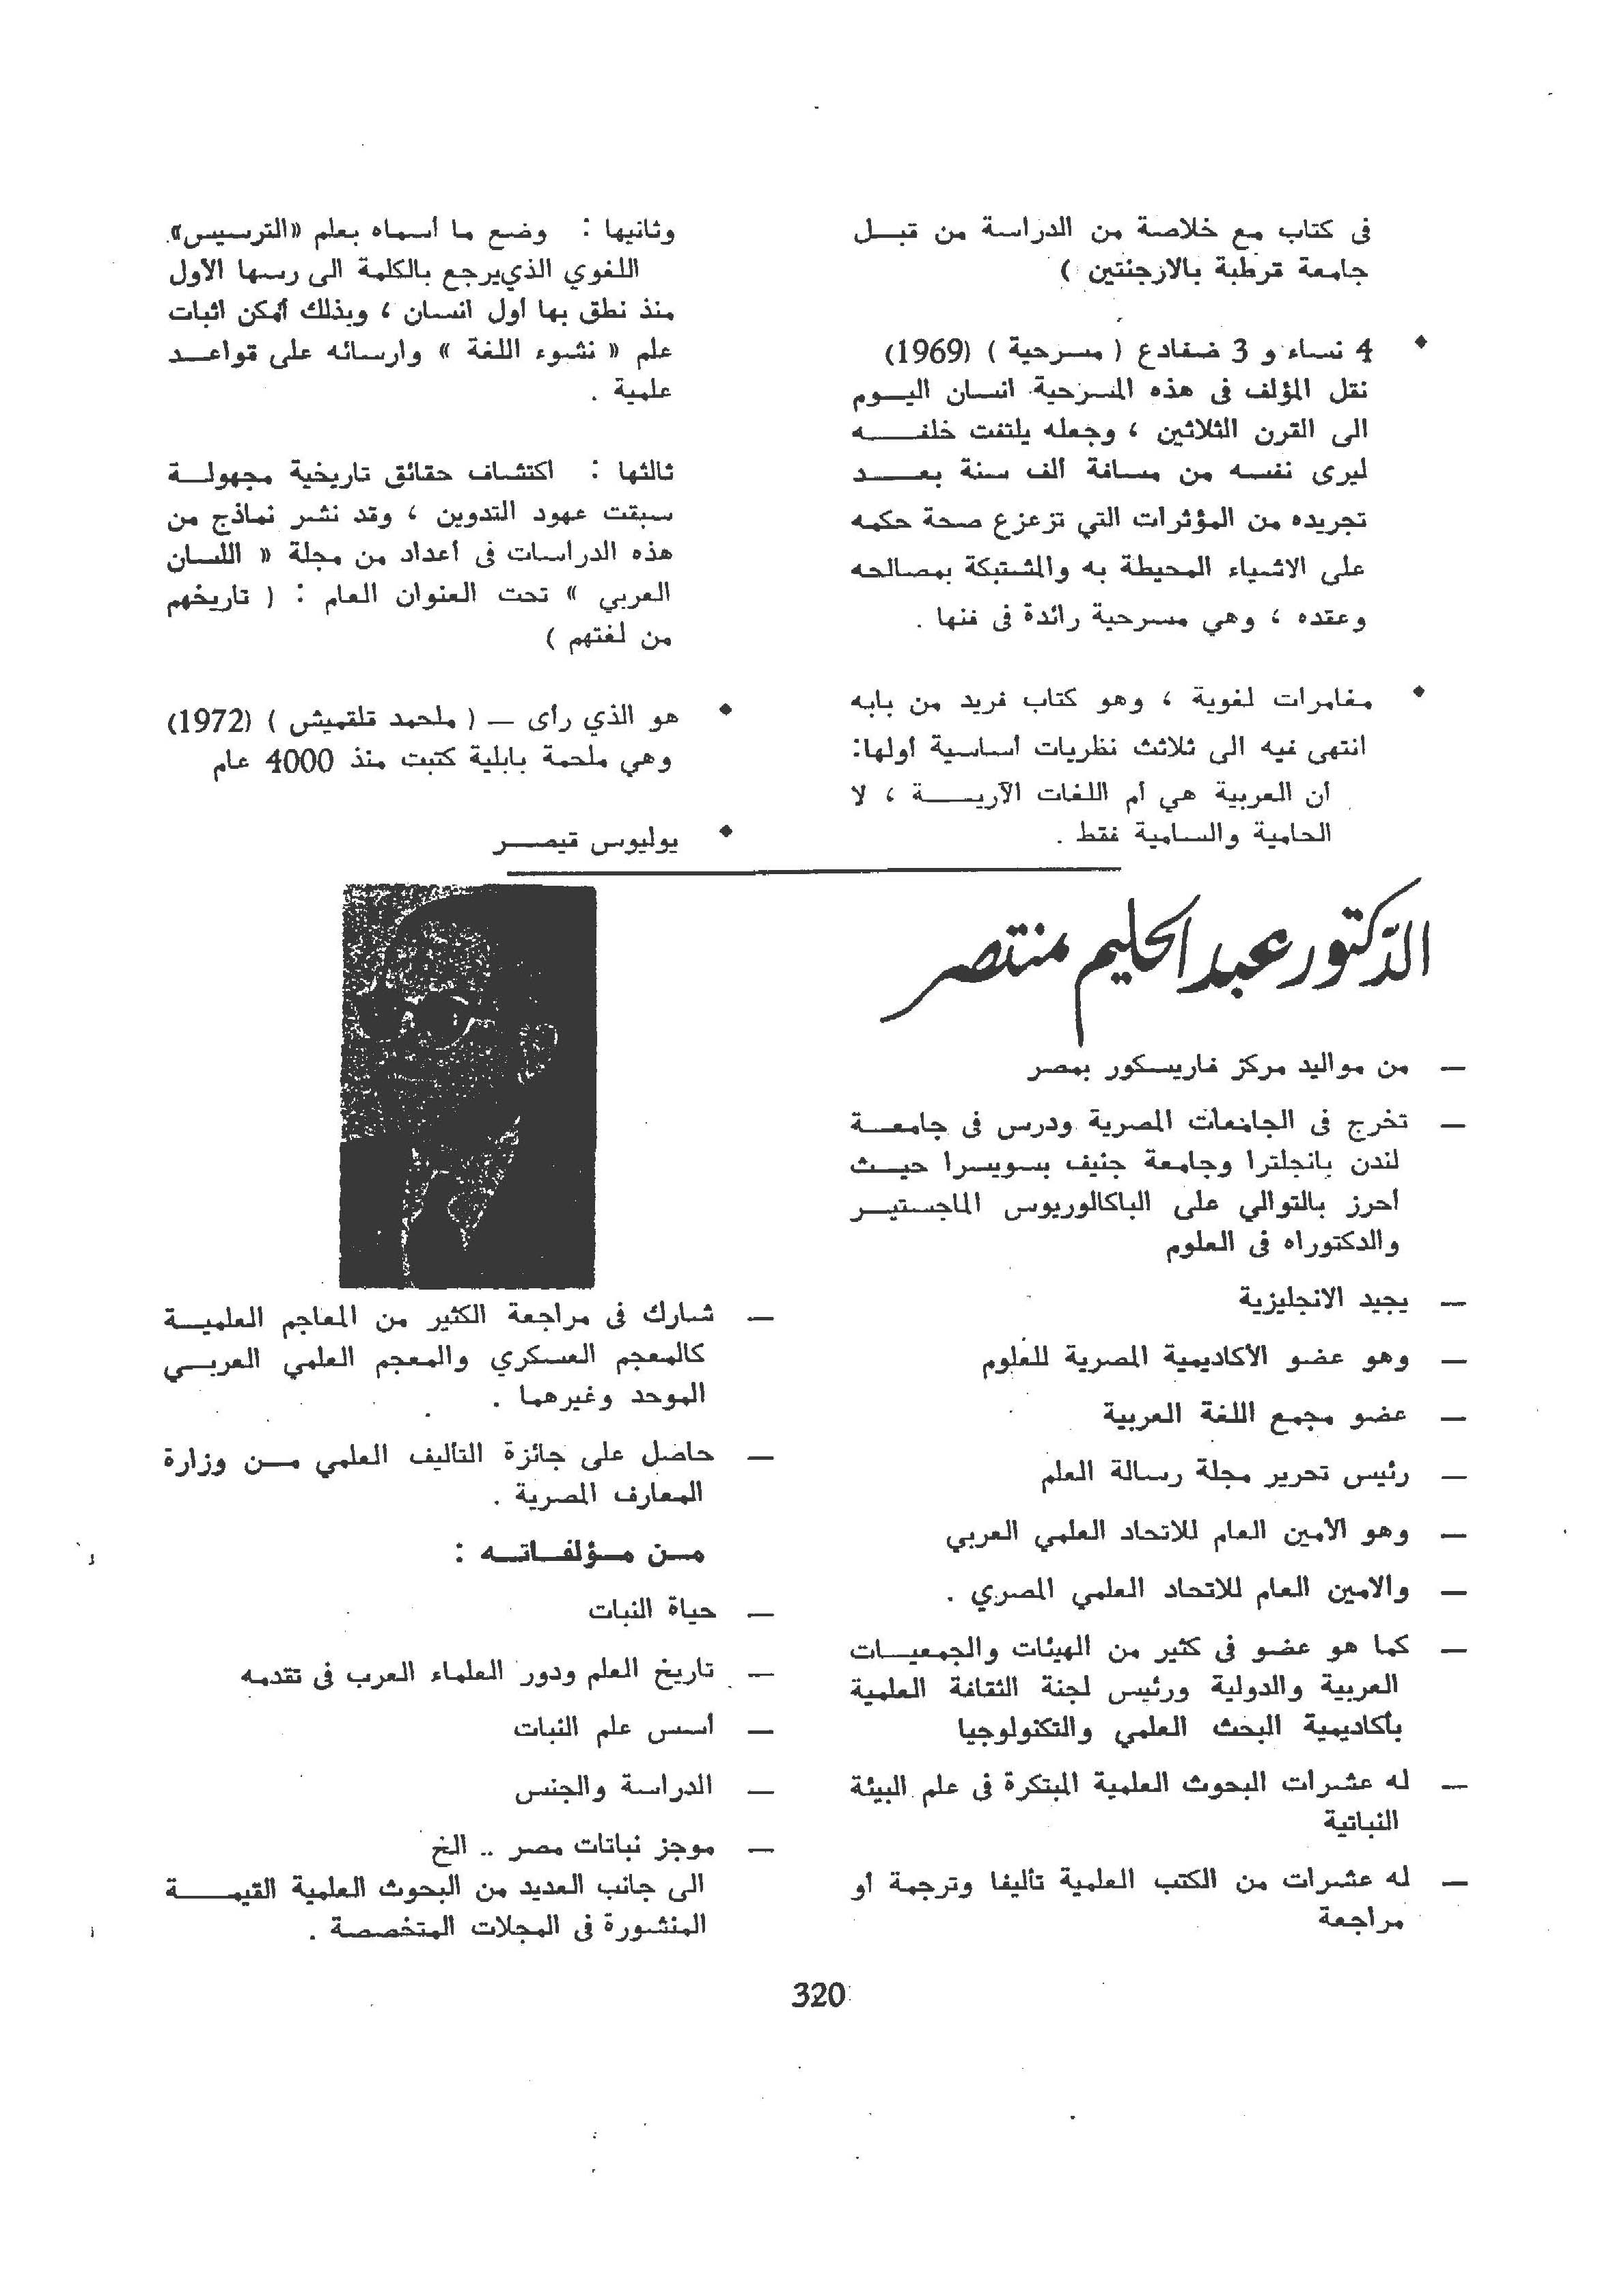 فى كتاب مع خلاصة من الدراسة من قبـــل
جامعة قرطبة بالارجنتين )
♦ 4 نساء و 3 ضفادع ( مسرحية ) (1969)
نقل المؤلف فى هذه المسرحية انسان اليـــوم
الى القرن الثلاثين ، وجعله يلتفت خلفـــــه
ليرى نفسه من مسافة ألف سنة بعـــــد
تجريده من المؤثرات التي تزعزع صحة حكمه
على الاشياء المحيطة به والمشتبكة بمصالحه
وعقده ، وهي مسرحية رائدة فى فنها .
♦ مغامرات لغوية ، وهو كتاب فريد من بابه
انتهى فيه الى ثلاث نظريات أساسية أولها:
أن العربية هي أم اللغات الآريـــــة ، لا
الحامية والسامية فقط .
وثانيها : وضع ما أسماه بعلم «الترسيس»
اللغوي الذي يرجع بالكلمة الى رسها الأول
منذ نطق بها أول انسان ، وبذلك أمكن اثبات
علم « نشوء اللغة » وارسائه على قواعـــد
علمية .
ثالثها : اكتشاف حقائق تاريخية مجهولـــة
سبقت عهود التدوين ، وقد نشر نماذج من
هذه الدراسات فى أعداد من مجلة « اللسان
العربي » تحت العنوان العام : ( تاريخهم
من لغتهم )
♦ هو الذي رأى — ( ملحمد قلقميش ) (1972)
وهي ملحمة بابلية كتبت منذ 4000 عام
♦ يوليوس قيصـــر
الدّكتور عبد الحليم منتصر
— من مواليد مركز فاريسكور بمصر
— تخرج فى الجامعات المصرية ودرس فى جامعـــة
لندن بانجلترا وجامعة جنيف بسويسرا حيـــث
أحرز بالتوالي على الباكالوريوس الماجستيـــر
والدكتوراه فى العلوم
— يجيد الانجليزية
— وهو عضو الأكاديمية المصرية للعلوم
— عضو مجمع اللغة العربية
— رئيس تحرير مجلة رسالة العلم
— وهو الأمين العام للاتحاد العلمي العربي
— والامين العام للاتحاد العلمي المصري .
— كما هو عضو فى كثير من الهيئات والجمعيـــات
العربية والدولية ورئيس لجنة الثقافة العلمية
بأكاديمية البحث العلمي والتكنولوجيا
— له عشرات البحوث العلمية المبتكرة فى علم البيئة
النباتية
— له عشرات من الكتب العلمية تأليفا وترجمة أو
مراجعة
— شارك فى مراجعة الكثير من المعاجم العلميـــة
كالمعجم العسكري والمعجم العلمي العربـــي
الموحد وغيرهما .
— حاصل على جائزة التأليف العلمي مـــن وزارة
المعارف المصرية .
مـــن مـــؤلفـــاتـــه :
— حياة النبات
— تاريخ العلم ودور العلماء العرب فى تقدمه
— أسس علم النبات
— الدراسة والجنس
— موجز نباتات مصر .. الخ
الى جانب العديد من البحوث العلمية القيمـــــة
المنشورة فى المجلات المتخصصة .
320